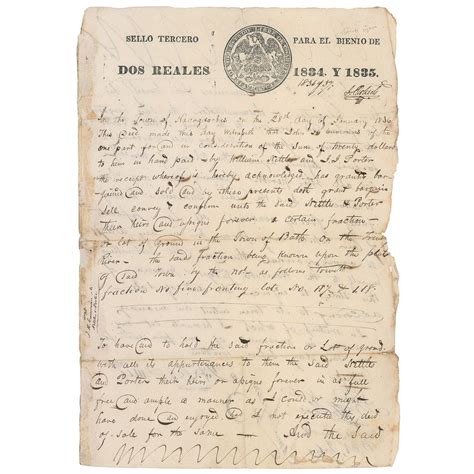 SELLO TERCERO PARA EL BIENIO DE
DOS REALES 1834. Y 1835.
In the Town of Nacogdoches on the 23d day of January 1836
This Deed made this day between that John
one part for and in consideration of the Sum of twenty dollars
to him in hand paid by William Nettles and Porter
the receipt whereof is hereby acknowledged, has granted bar
gained and sold and by these present doth grant bargain
Sell convey & confirm unto the Said Nettle & Porter
their heirs and assigns forever a certain fraction
or lot of Ground in the Town of Bath on the
River the Said fraction being known upon the plot
of Said town by the No. as follows towith
fraction No five fronting Lots No. 187 & 188.
To have and to hold the Said fraction or Lot of ground
with all its appurtenances to them the Said Nettle
and Porter their heirs or assigns forever in as full
free and ample a manner as I Could or might
have done and enjoyed did I not execute this deed
of Sale for the same — And the Said